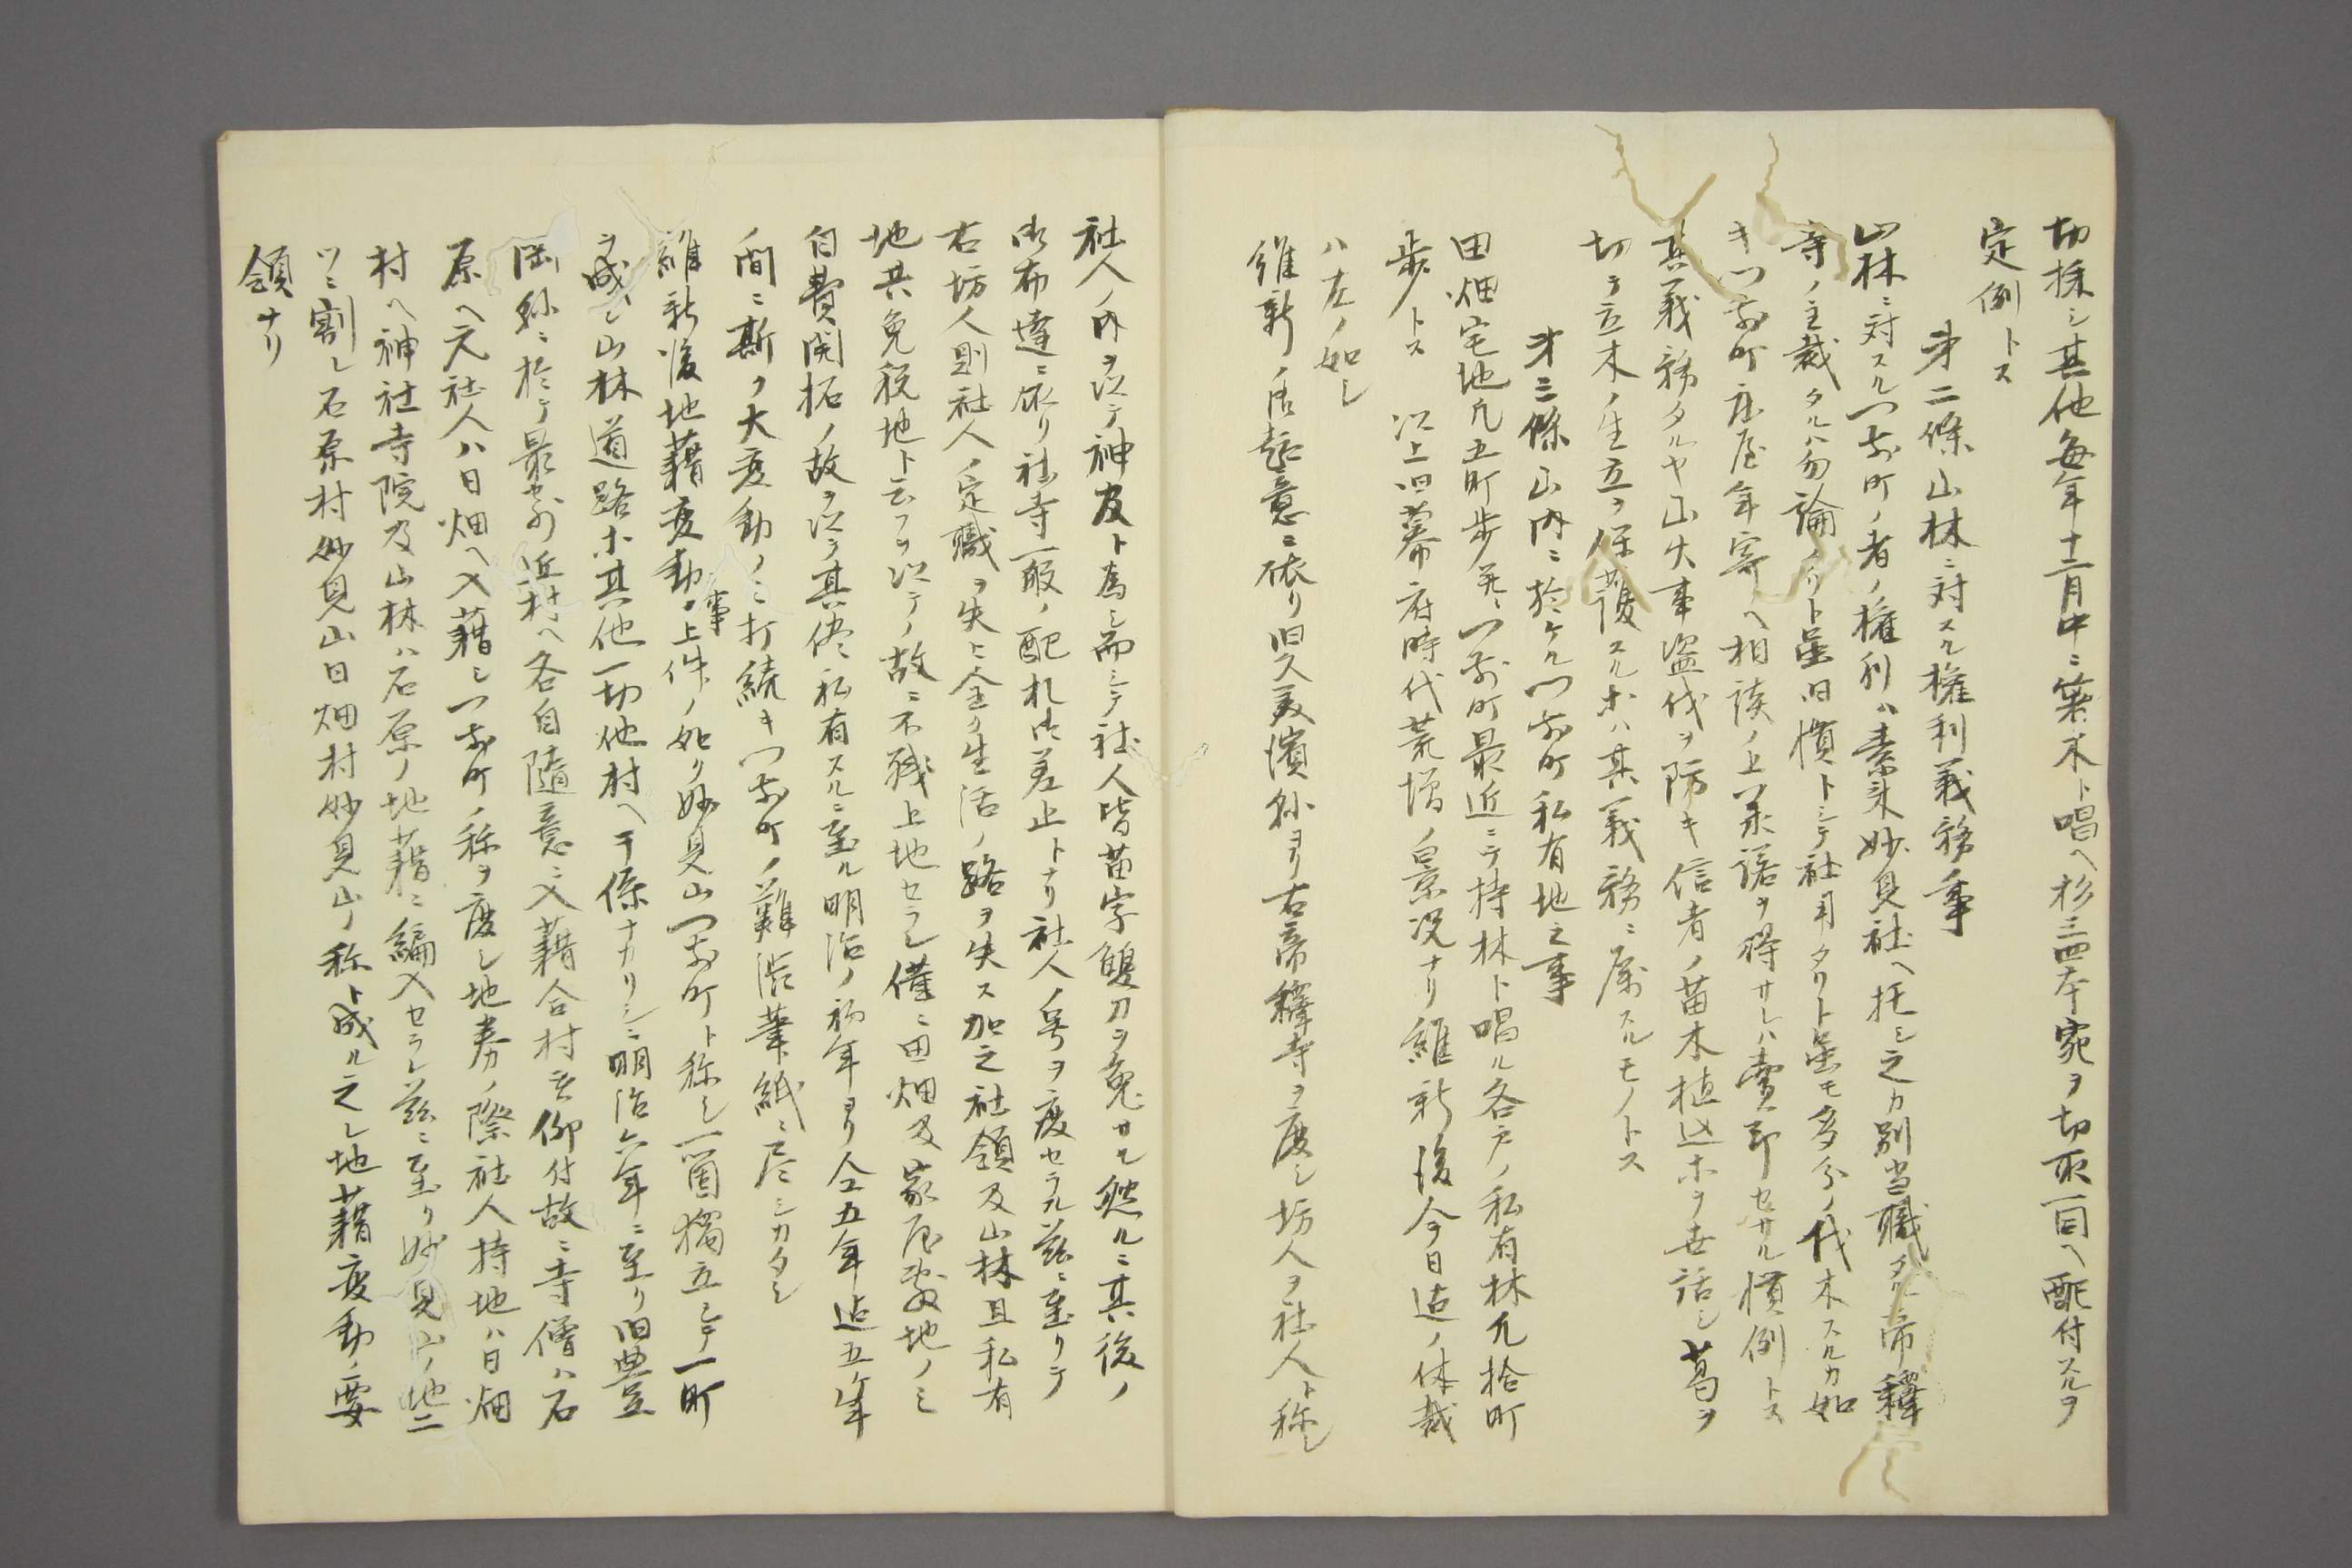 切採シ其他毎年十二月中ニ築木ト唱ヘ杉三四本宛ヲ切取一同ヘ配付スルヲ
定例トス
第二條山林ニ対スル権利義務ノ事
山林ニ対スル門前町ノ者ノ権利ハ素来妙見社ヘ托シ之カ別当職タル帝釋
寺ノ主裁タルハ勿論ナリト虽旧慣トシテ社司タリト虽モ多分ノ伐木スルカ如
キ門前町庄屋年寄ヘ相談ノ上承諾ヲ得サレハ賣却セサル慣例トス
其義務タルヤ山火事盗伐ヲ防キ信者ノ苗木植込ホヲ世話シ葛ヲ
切テ立木ノ生立ヲ保護スルホハ其義務ニ属スルモノトス
第三條山内ニ於ケル門前町私有地之事
田畑宅地凡五町歩并ニ門前町最近ニテ持林ト唱ル各戸ノ私有林凡拾町
歩トス　以上旧幕府時代荒増ノ景况ナリ維新後今日迠ノ体裁
ハ左ノ如シ
維新ノ御趣意ニ依リ旧久美濱縣ヨリ右帝釋寺ヲ廃シ坊人ヲ社人ト称シ
社人ノ内ヲ以テ神官ト為シ而シテ社人皆苗字雙刀ヲ免サセ然ルニ其後ノ
御布達ニ依リ社寺一般ノ配札御差止トナリ社人ノ号ヲ廃セラル茲ニ至リテ
右坊人則社人ノ定職ヲ失ヒ全ク生活ノ路ヲ失ス加之社領及山林且私有
地共免税地ト云フヲ以テノ故ニ不残上地セラレ僅ニ田畑及家屋敷地ノミ
自費開拓ノ故ヲ以テ其侭私有スルニ至ル明治ノ初年ヨリ仝五年迠五ケ年
ノ間ニ斯ク大変動ノミ打続キ門前町ノ難渋筆紙ニ尽シカタシ
維新後地藉変動ノ事上件ノ如ク妙見山門前町ト称シ一箇獨立シテ一町
ヲ成シ山林道路ホ其他一切他村ヘ干係ナカリシニ明治六年ニ至リ旧豊
岡縣ニ於テ最寄近村ヘ各自隨意ニ入藉合村ヲ仰付故ニ寺僧ハ石
原ヘ元社人ハ日畑ヘ入藉シ門前町ノ称ヲ廃シ地券ノ際社人持地ハ日畑
村ヘ神社寺院及山林ハ石原ノ地藉ニ編入セラレ茲ニ至リ妙見山ノ地二
ツニ割レ石原村妙見山日畑村妙見山ノ称ト成ル之レ地藉変動ノ要
領ナリ